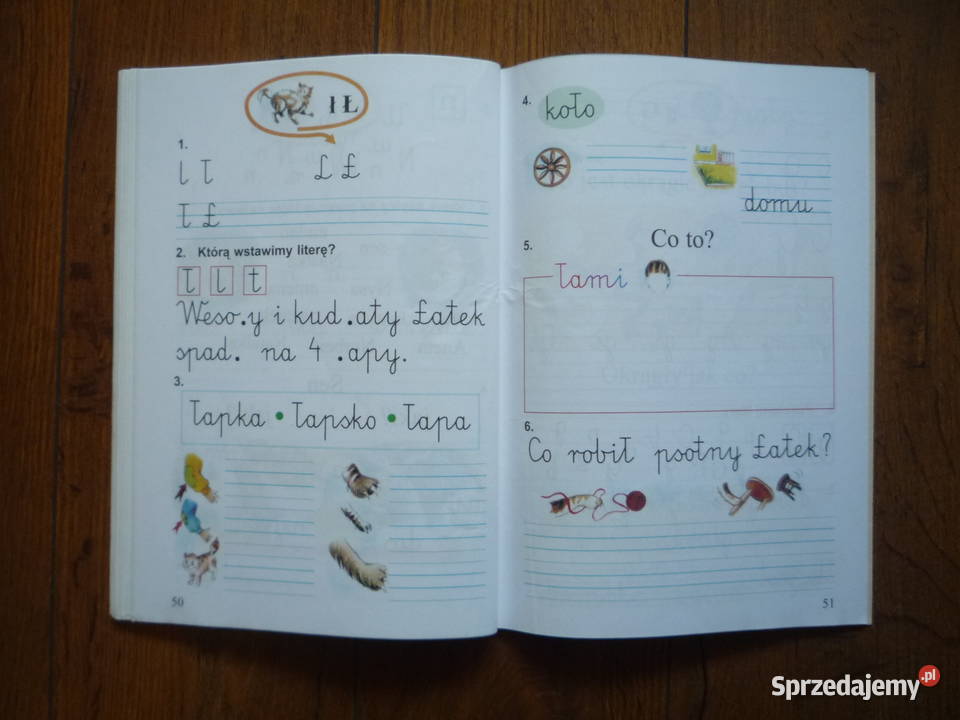 ł Ł
1.
l ł L Ł
ł Ł
2. Którą wstawimy literę?
ł l t
Weso.y i kud.aty Łatek
spad. na 4 .apy.
3.
łapka • łapsko • łapa
50
4.
koło
domu
Co to?
5.
łami
6.
Co robił psotny Łatek?
51
Sprzedajemy.pl